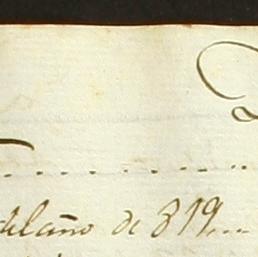 delaño de 819